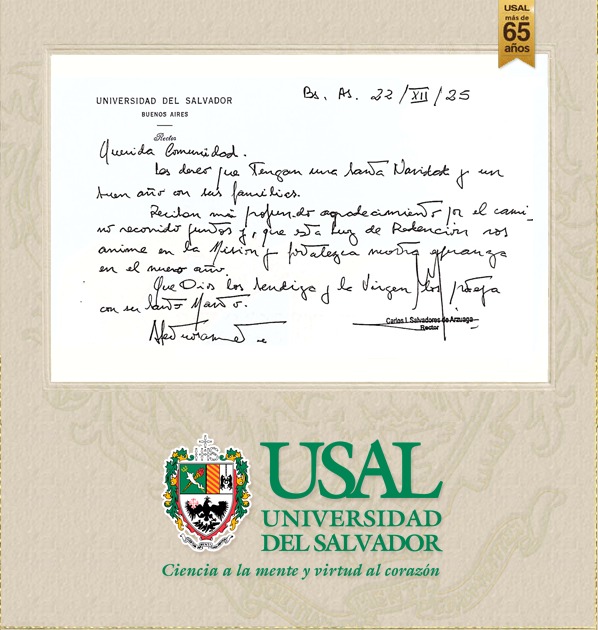 USAL
más de
65
años
UNIVERSIDAD DEL SALVADOR
BUENOS AIRES
Rector
Bs. As. 22/XII/25
Querida Comunidad.
Les deseo que tengan una Santa Navidad y un
buen año con sus familias.
Reciban mi profundo agradecimiento por el cami-
no recorrido juntos y, que esta Luz de Redención nos
anime en la Misión y fortalezca nuestra esperanza
en el nuevo año.
Que Dios los bendiga y la Virgen los proteja
con su Santo Manto.
Afectuosamente
Carlos I. Salvadores de Arzuaga
Rector
USAL
UNIVERSIDAD
DEL SALVADOR
Ciencia a la mente y virtud al corazón